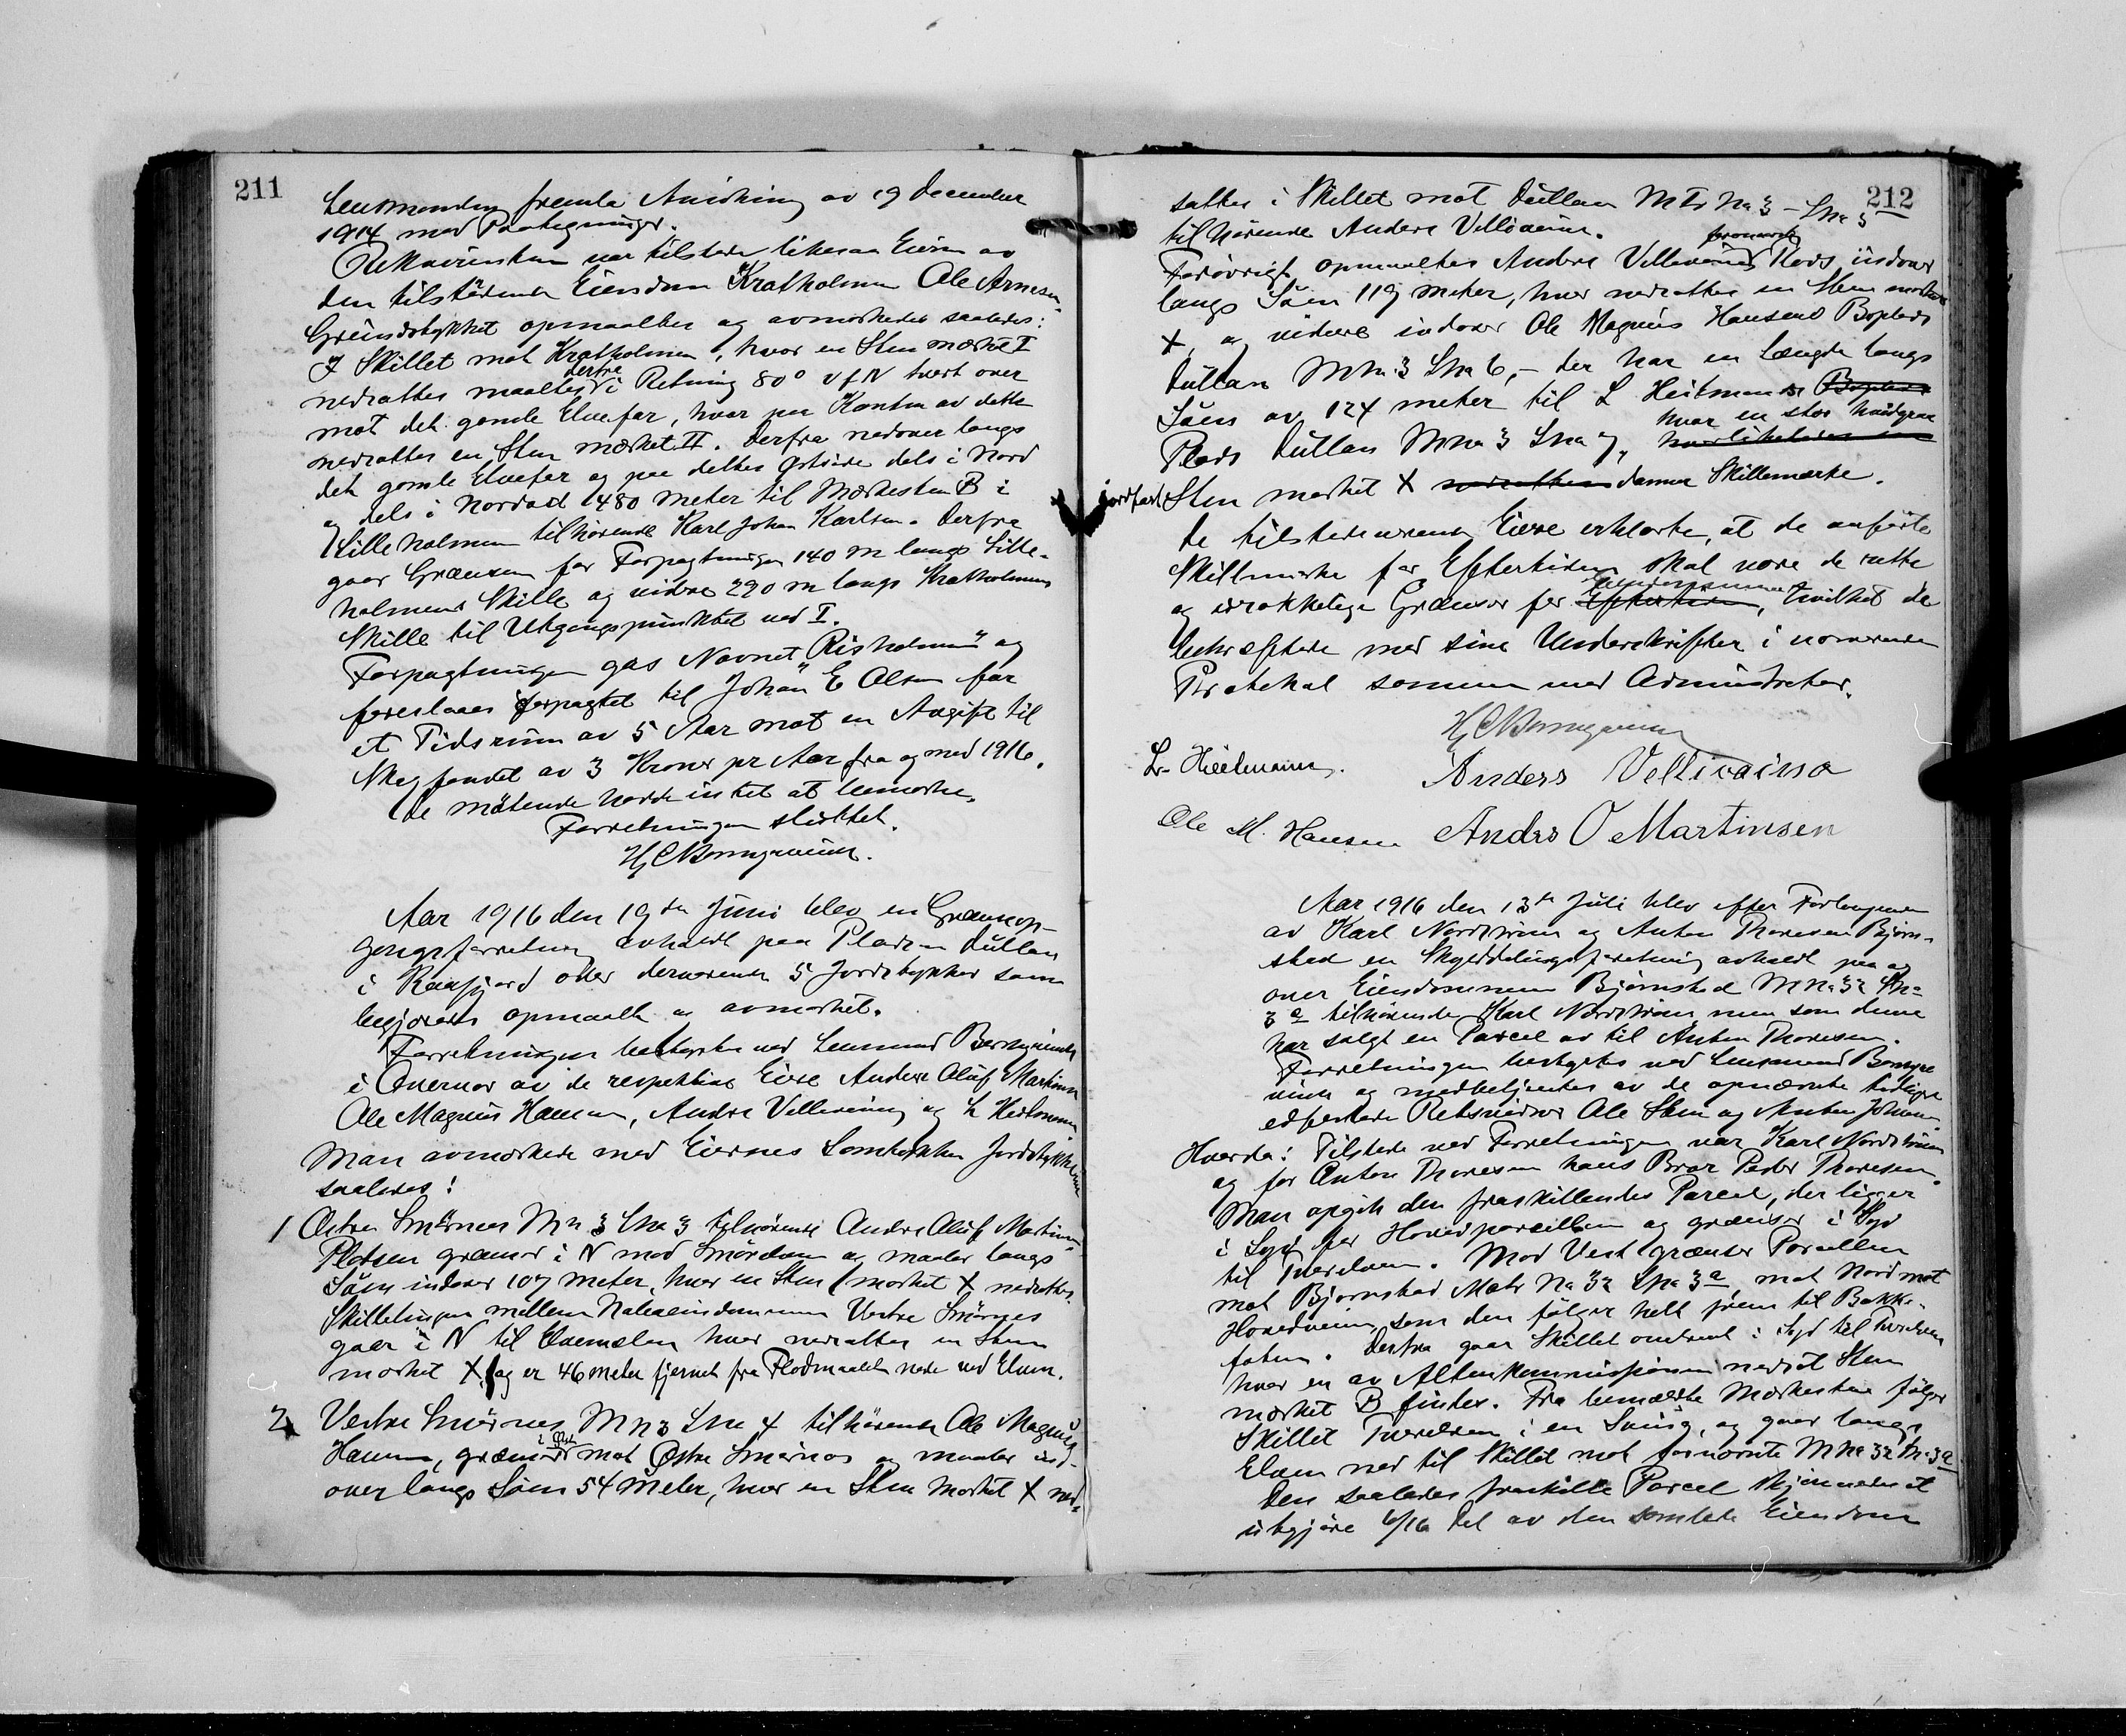 211
Lensmanden fremla Anvisning av 19 December
1914 med Paategninger.
Rekvirenten var tilstede likesaa Eieren av
den tilstötende Eiendom Kratholmen Ole Arnesen.
Grundstykket opmaaltes og avmerkedes saaledes:
I Skillet mot Kratholmen, hvor en Sten merket I
nedsattes maaltes derfra i Retning 80° v f N tvert over
mot det gamle Elvefar, hvor paa Kanten av dette
nedsattes en Sten mærket II. Derfra nedover langs
det gamle Elvefar og paa dettes Østside dels i Nord
og dels i Nordost 1480 meter til Merkesten B i
Lilleholmen tilhørende Karl Johan Karlsen. Derfra
gaar Grænsen for Forpagtningen 140 m langs Lille-
holmens Skille og videre 290 m langs Kratholmens
Skille til Utgangspunktet ved I.
Forpagtningen gas Navnet "Risholmen" og
foreslaaes forpagtet til Johan E Olsen for
et Tidsrum av 5 Aar mot en Avgift til
Skogfondet av 3 Kroner pr Aar fra og med 1916.
De mötende hadde intet at bemerke.
Forretningen sluttet.
Aar 1916 den 19de Juni blev en Grænseop-
gangsforretning avholdt paa Pladsen Dullan
i Rafsjord over derværende 5 Jordstykker som
begjæres opmaalt og avmerket.
Forretningen bestyrtes ved Lensmand
i Overvær av de respektive Eiere Anders Oluf Martinsen
Ole Magnus Hansen, Anders Vellivaino og L Heitmann.
Man avmerkede med Eiernes Samtykke Jordstykkerne
saaledes:
1 Østre Smörnes M n 3 Lna 3 tilhørende Anders Oluf Martinsen.
Pladsen grænser i N mod Smördam og maaler langs
Söen indover 107 meter, hvor en Sten merket X nedsattes.
Skillelinjen mellem Naboeiendommen Vestre Smörnes
gaar i N til Elvemelen hvor nedsattes en Sten
merket X, og er 46 meter fjernet fra Flodmaalet nede ved Elven.
2 Vestre Smörnes M n 3 Lna 4 tilhörende Ole Magnus
Hansen, grænser i Øst mot Østre Smörnes og maaler ind-
over langs Söen 54 meter, hvor en Sten merket X ned-
212
sattes i Skillet mot Dullan M Nr Na 3 - Lna 5
tilhörende Anders Vellivaino.
Forövrigt opmaaltes Anders Vellivainos Plads indover
langs Söen 119 meter, hvor nedsattes en Sten merket
X, og videre indover Ole Magnus Hansens Boplads
Dullan M Na 3 Lna 6, - der har en Længde langs
Söen av 124 meter til L Heitmanns Boplads
Plads Dullan M Na 3 Lna 7, hvor en stor
jordfast Sten merket X nedsattes danner Skillemærke.
De tilstedeværende Eiere erklærte, at de anførte
Skillemerker for Eftertiden skal være de rette
og urokkelige Grænser for Eiendommene, hvilket de
bekræftede med sine Underskrifter i nærværende
Protokol sammen med Administrator.
L. Heitmann. Anders Vellivaino
Ole M. Hansen Andrs O Martinsen
Aar 1916 den 13de Juli blev efter Forlangende
av Karl Nordström og Anton Thoresen Björn-
stad en Skylddelingsforretning avholdt paa og
over Eiendommen Björnstad M Na 32 Lna
3a tilhørende Karl Nordström men som denne
har solgt en Parcel av til Anton Thoresen.
Forretningen bestyrtes ved Lensmand
og medbetjentes av de opnævnte tidligere
edfæstede Retsvidner Ole Steen og Anton Johan-
Hvorda: Tilstede ved Forretningen var Karl Nordström
og for Anton Thoresen hans Bror Peder Thoresen.
Man opgik den fraskillendes Parcel, der ligger
i Syd for Hovedparcellen og grænser i Syd
til Tverelven. Mod Vest grænser Parcellen
mot Björnstad Matr Na 32 Lna 3a, mot Nord mot
Hovedveien, som den følger helt frem til Bakke-
foten. Derfra gaar Skillet omtrent i Syd til Tverelven
hvor en av Altenkommissionen nedsat Sten
mærket B findes. Fra bemældte Mærkesten følger
Skillet Tverelven i en Sving, og gaar langs
Elven ned til Skillet mot førnævnte M Na 32 Lna 3a
Den saaledes fraskilte Parcel skjönnedes at
utgjøre 6/16 Del av den samlede Eiendom